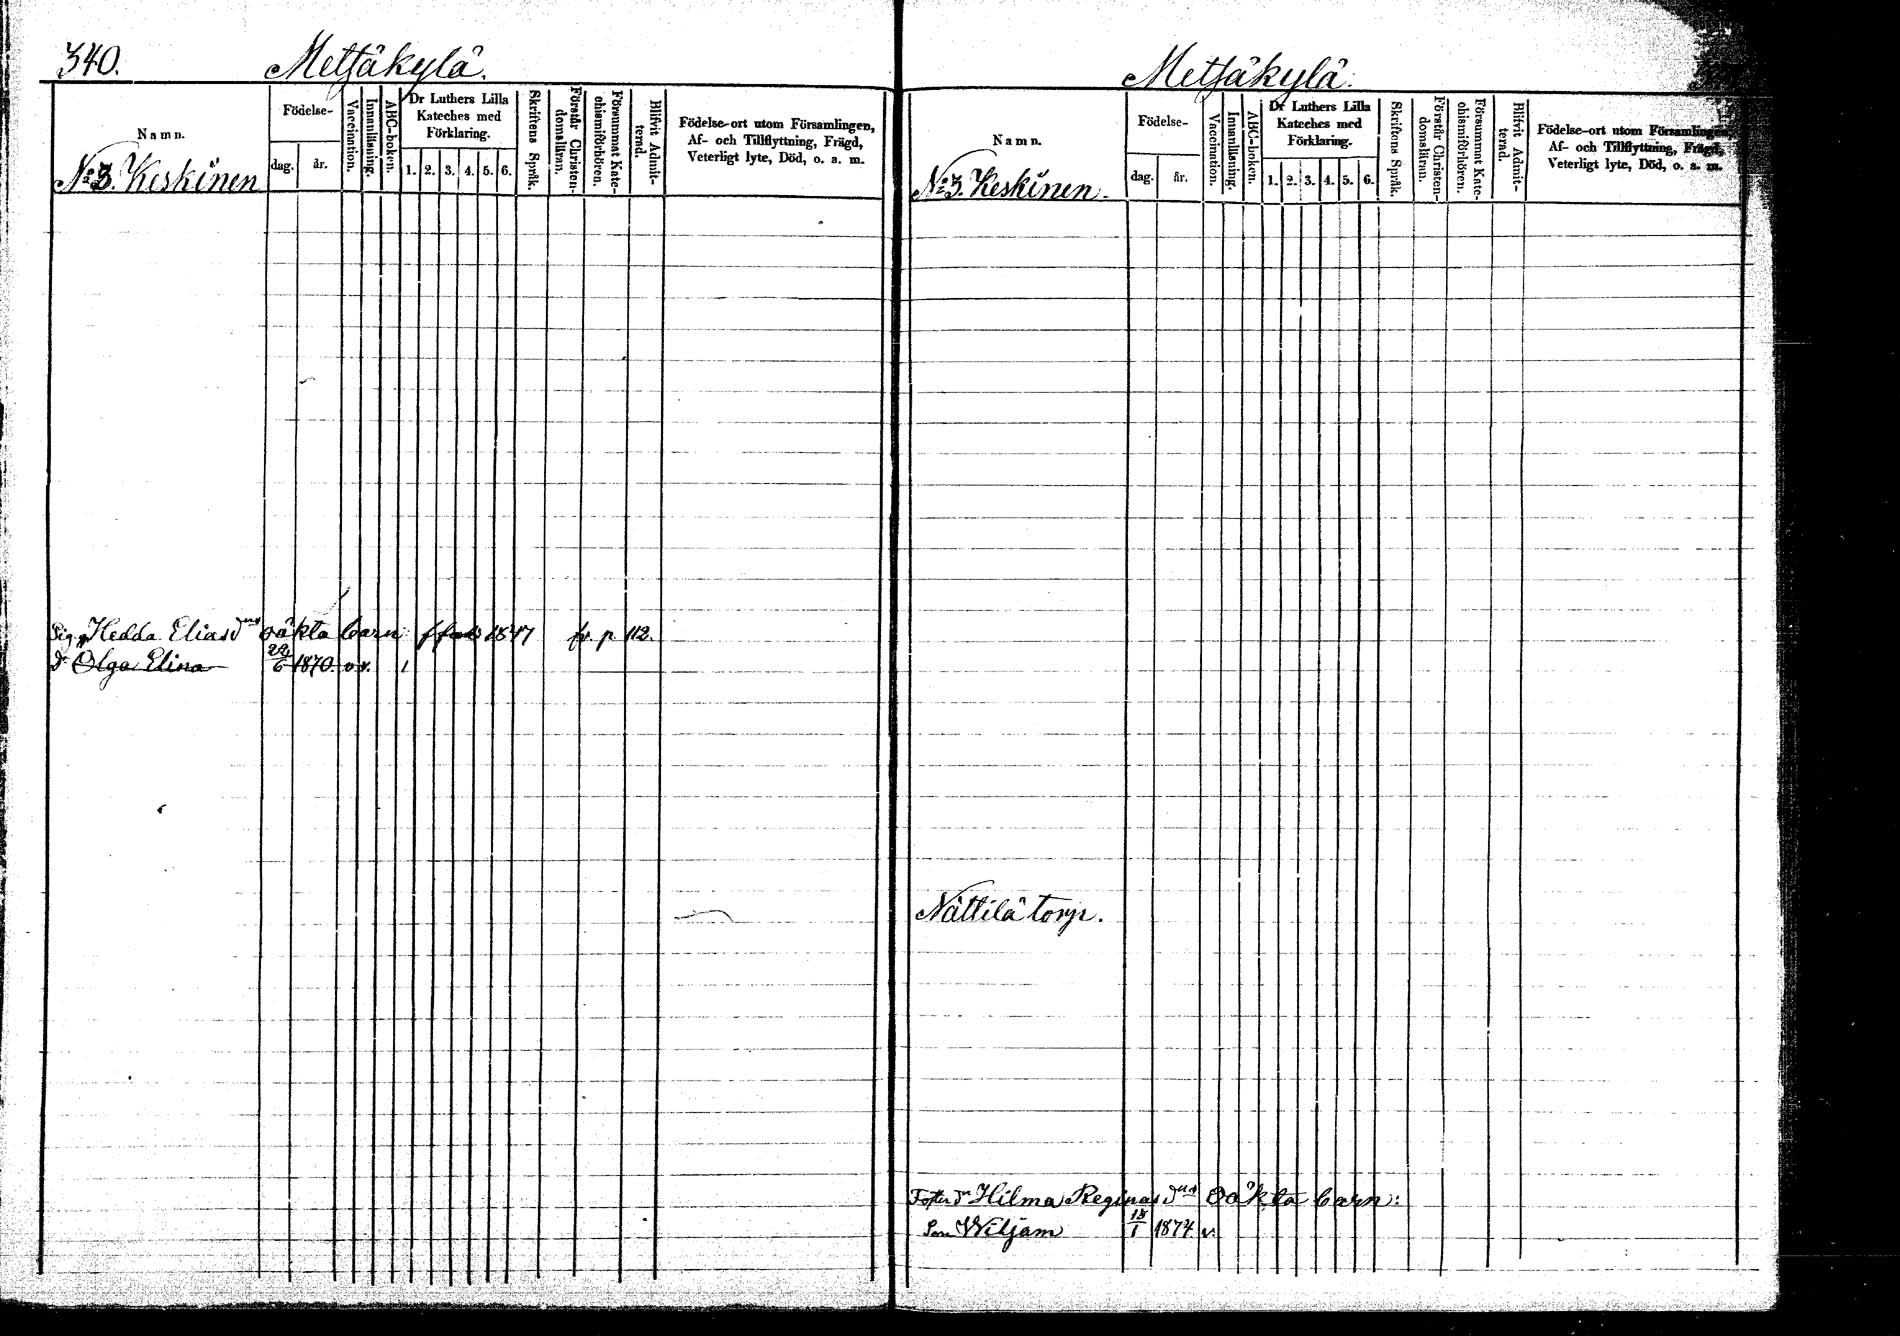 340.
Metsäkylä.
Namn.
Födelse-
dag.
år.
Vaccination.
Innanläsning.
ABC-boken.
Dr Luthers Lilla
Kateches med
Förklaring.
1. 2. 3. 4. 5. 6.
Skriftens Språk.
Förstår Christen-
domsläran.
Försummat Kate-
chismiförhören.
Blifvit Admit-
terad.
Födelse-ort utom Församlingen,
Af- och Tillflyttning, Frägd,
Veterligt lyte, Död, o. a. m.
No 3. Keskinen
Hedda Eliasd oäkta barn: 1847 fr. p. 112.
dr Olga Elina 22/6 1870. v. 1
Metsäkylä.
Namn.
Födelse-
dag.
år.
Vaccination.
Innanläsning.
ABC-boken.
Dr Luthers Lilla
Kateches med
Förklaring.
1. 2. 3. 4. 5. 6.
Skriftens Språk.
Förstår Christen-
domsläran.
Försummat Kate-
chismiförhören.
Blifvit Admit-
terad.
Födelse-ort utom Församlingen,
Af- och Tillflyttning, Frägd,
Veterligt lyte, Död, o. a. m.
No 3. Keskinen.
Nättilä torp.
Foster dr Hilma Reginas drs oäkta barn:
Son Wiljam 18/1 1874 v.